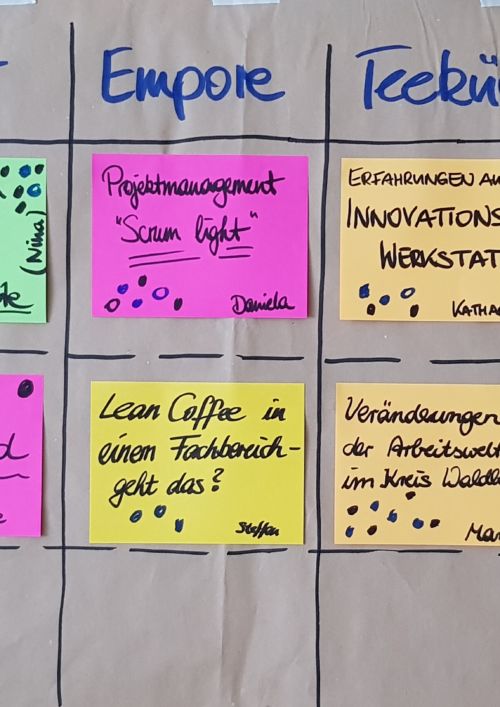 Empore
Teekü
(Nina)
Projektmanagement
"Scrum light"
Daniela
ERFAHRUNGEN AU
INNOVATIONS
WERKSTAT
KATHA
Lean Coffee in
einem Fachbereich-
geht das?
Steffen
Veränderungen
der Arbeitswelt
im Kreis Waldl
Mar